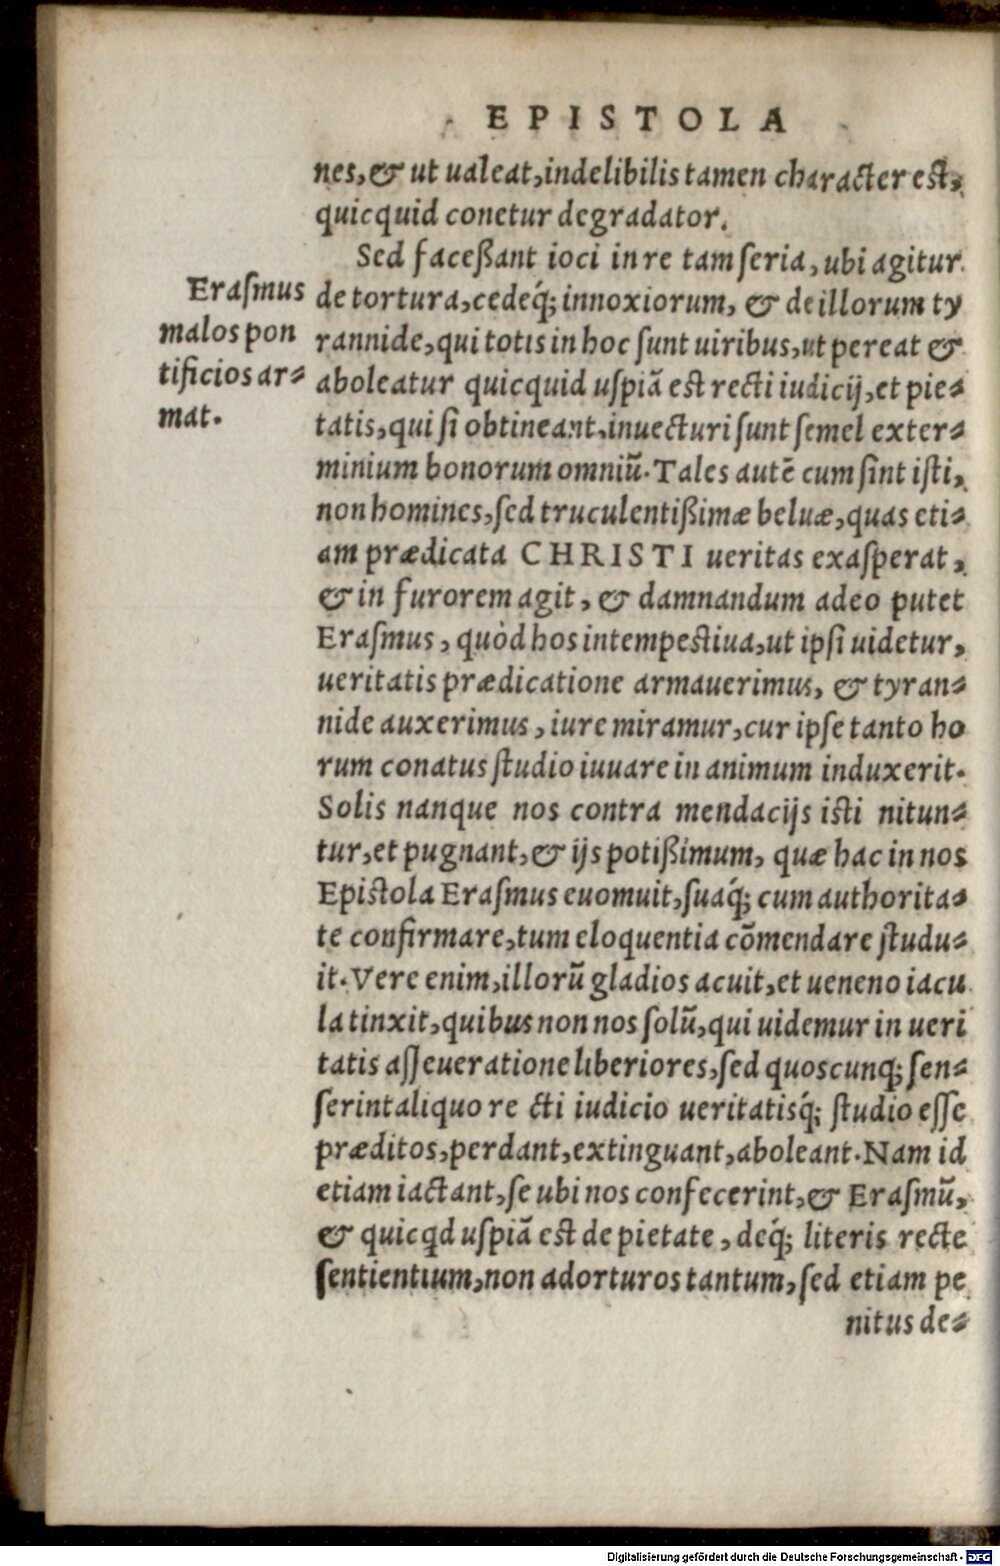 EPISTOLA
nes, & ut ualeat, indelibilis tamen character est,
quicquid conetur degradator.
Sed faceßant ioci in re tam seria, ubi agitur
Erasmus
malos pon
tificios ar-
mat.
de tortura, cedeq́; innoxiorum, & de illorum ty
rannide, qui totis in hoc sunt uiribus, ut pereat &
aboleatur quicquid uspiã est recti iudicij, et pie-
tatis, qui si obtineant, inuecturi sunt semel exter-
minium bonorum omniũ. Tales autẽ cum sint isti,
non homines, sed truculentißimæ beluæ, quas eti-
am prædicata CHRISTI ueritas exasperat,
& in furorem agit, & damnandum adeo putet
Erasmus, quòd hos intempestiua, ut ipsi uidetur,
ueritatis prædicatione armauerimus, & tyran-
nide auxerimus, iure miramur, cur ipse tanto ho
rum conatus studio iuuare in animum induxerit.
Solis nanque nos contra mendacijs isti nitun-
tur, et pugnant, & ijs potißimum, quæ hac in nos
Epistola Erasmus euomuit, suaq́; cum authorita-
te confirmare, tum eloquentia cõmendare studu-
it. Vere enim, illorũ gladios acuit, et ueneno iacu
la tinxit, quibus non nos solũ, qui uidemur in ueri
tatis asseueratione liberiores, sed quoscunq; sen-
serint aliquo re cti iudicio ueritatisq́; studio esse
præditos, perdant, extinguant, aboleant. Nam id
etiam iactant, se ubi nos confecerint, & Erasmũ,
& quicqd uspiã est de pietate, deq́; literis recte
sentientium, non adorturos tantum, sed etiam pe
nitus de-
Digitalisierung gefördert durch die Deutsche Forschungsgemeinschaft - DFG